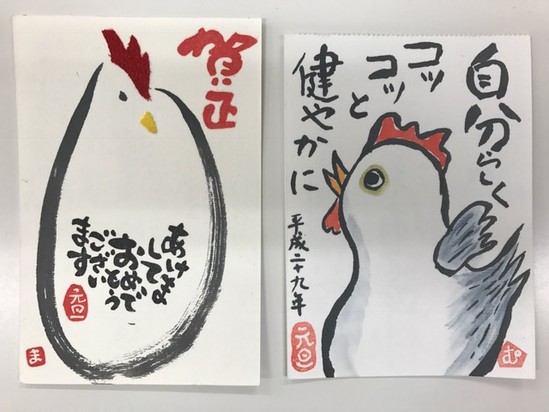 賀正
あけまして
おめでとう
ござい
ます
元旦
ま
自分らしく
コツ
コツ
と
健やかに
平成二十九年
元旦
む